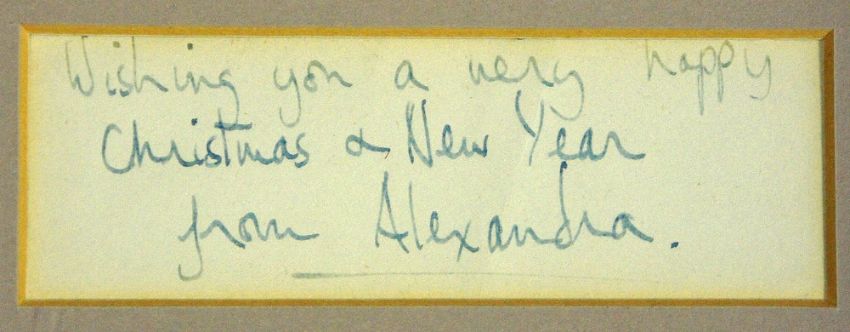 Wishing you a very happy
Christmas & New Year
from Alexandra.